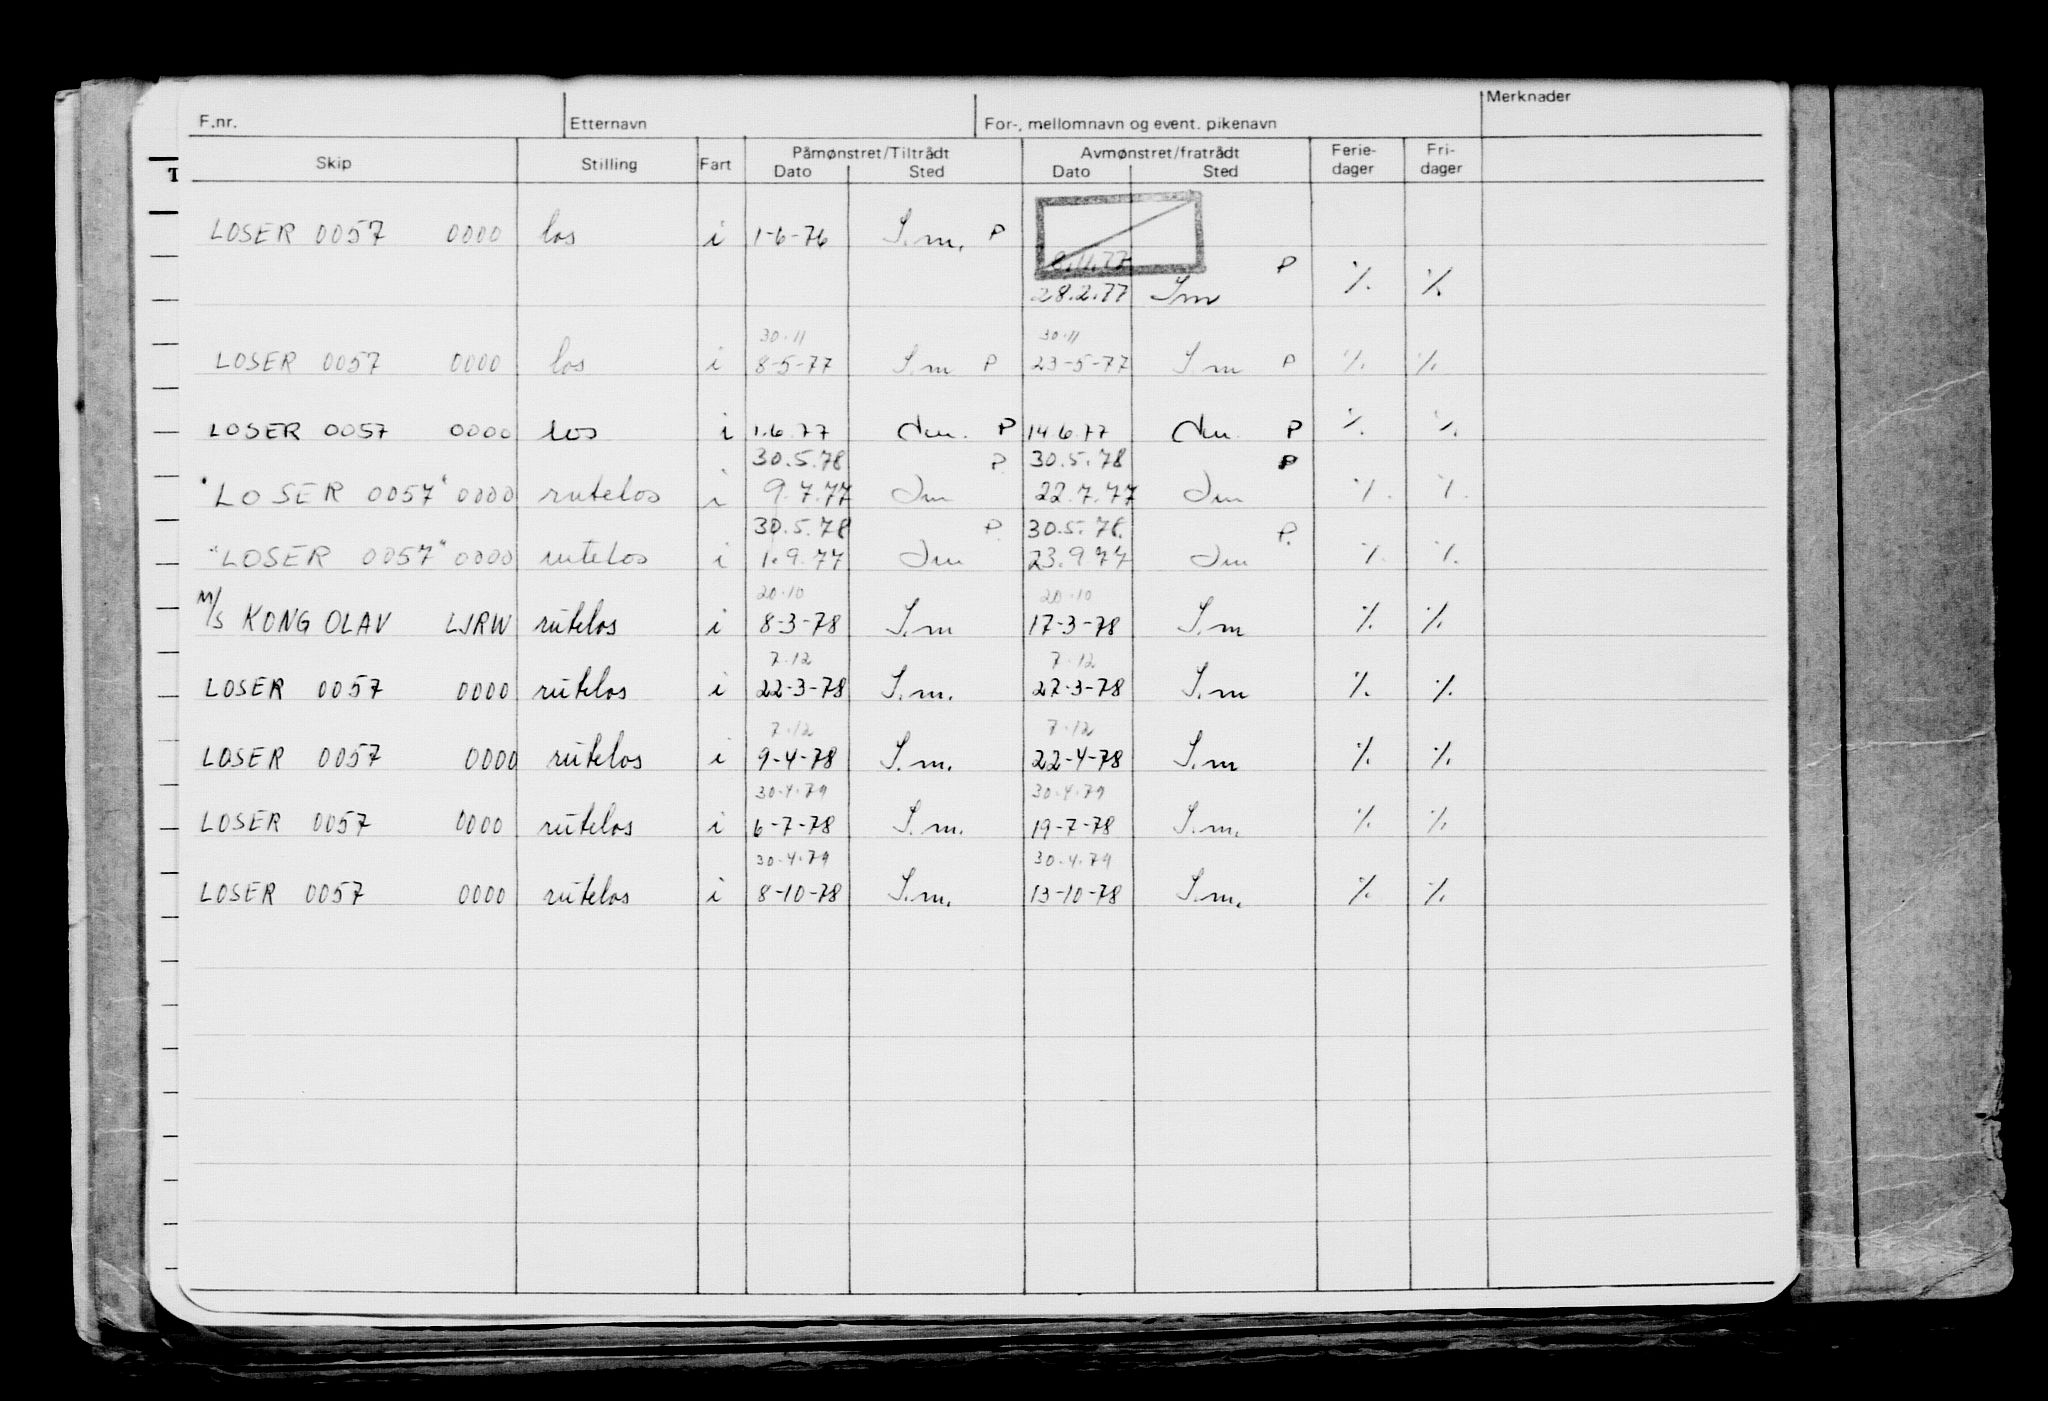 F.nr. Etternavn For-, mellomnavn og event. pikenavn Merknader
Skip Stilling Fart Påmønstret/Tiltrådt Avmønstret/fratrådt Ferie- Fri-
Dato Sted Dato Sted dager dager
LOSER 0057 0000 los i 1-6-76 S.m. P
P ٪ ٪
28.2.77 Sm
30.11 30.11
LOSER 0057 0000 los i 8-5-77 S.m P 23-5-77 S.m P ٪ ٪
LOSER 0057 0000 los i 1.6.77 Sm. P 14.6.77 Sm. P ٪ ٪
30.5.78 P 30.5.78 P
"LOSER 0057" 0000 rutelos i 9.7.77 Sm 22.7.77 Sm ٪ ٪
30.5.78 P. 30.5.78. P.
"LOSER 0057" 0000 rutelos i 1.9.77 Sm 23.9.77 Sm ٪ ٪
20.10 20.10
M/S KONG OLAV LJRW rutelos i 8-3-78 S.m 17-3-78 S.m ٪ ٪
7.12 7.12
LOSER 0057 0000 rutelos i 22-3-78 S.m. 27-3-78 S.m ٪ ٪
7.12 7.12
LOSER 0057 0000 rutelos i 9-4-78 S.m. 22-4-78 S.m ٪ ٪
30.4.79 30.4.79
LOSER 0057 0000 rutelos i 6-7-78 S.m. 19-7-78 S.m. ٪ ٪
30.4.79 30.4.79
LOSER 0057 0000 rutelos i 8-10-78 S.m. 13-10-78 S.m. ٪ ٪